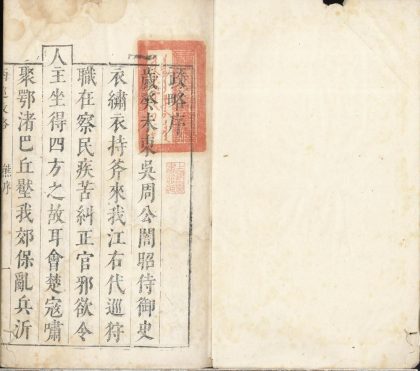 政略序
歲癸未東吳周公闇昭侍御史
衣繡衣持斧來我江右代巡狩
職在察民疾苦糾正官邪欲令
人王坐得四方之故耳會楚寇嘯
聚鄂渚巴丘壓我郊保亂兵沂